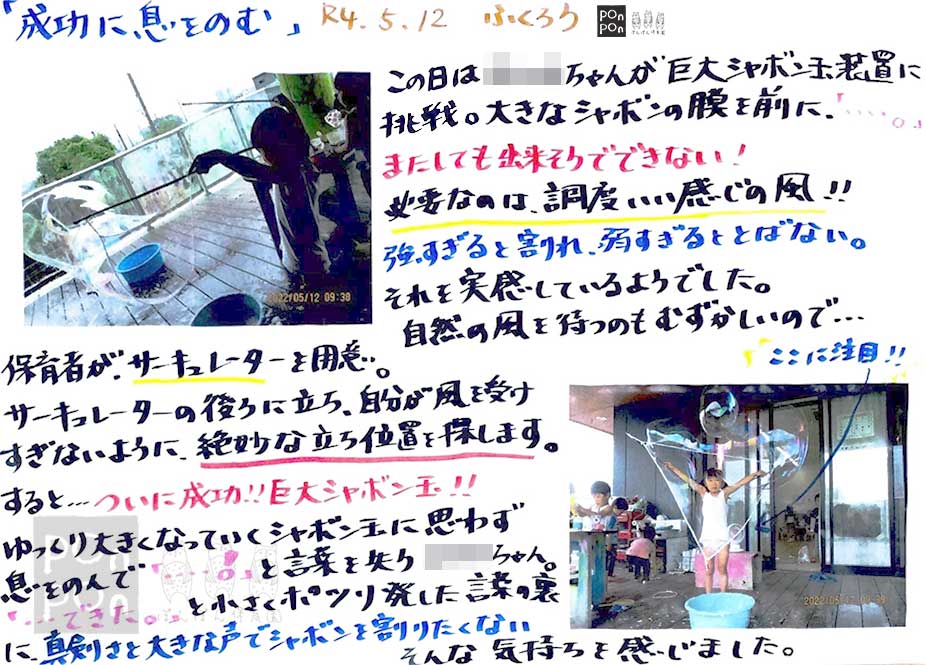 「成功に息をのむ」 R4.5.12 ふくろう
PONPON
ぽんぽん保育園
この日は ちゃんが巨大シャボン玉装置に
挑戦。大きなシャボンの膜を前に、「……。」
またしても出来そうでできない！
必要なのは、調度いい感じの風!!
強すぎると割れ、弱すぎるととばない。
それを実感しているようでした。
自然の風を待つのもむずかしいので…
2022/05/12 09:38
保育者が、サーキュレーターを用意。
サーキュレーターの後ろに立ち、自分が風を受け
すぎないように、絶妙な立ち位置を探します。
すると…ついに成功!!巨大シャボン玉!!
ゆっくり大きくなっていくシャボン玉に思わず
息をのんで「……。」と言葉を失う ちゃん。
「…できた。」と小さくポツリ発した言葉の裏
に、真剣さと大きな声でシャボンを割りたくない
そんな気持ちを感じました。
「ここに注目!!
2022/05/12 09:39
PONPON
ぽんぽん保育園